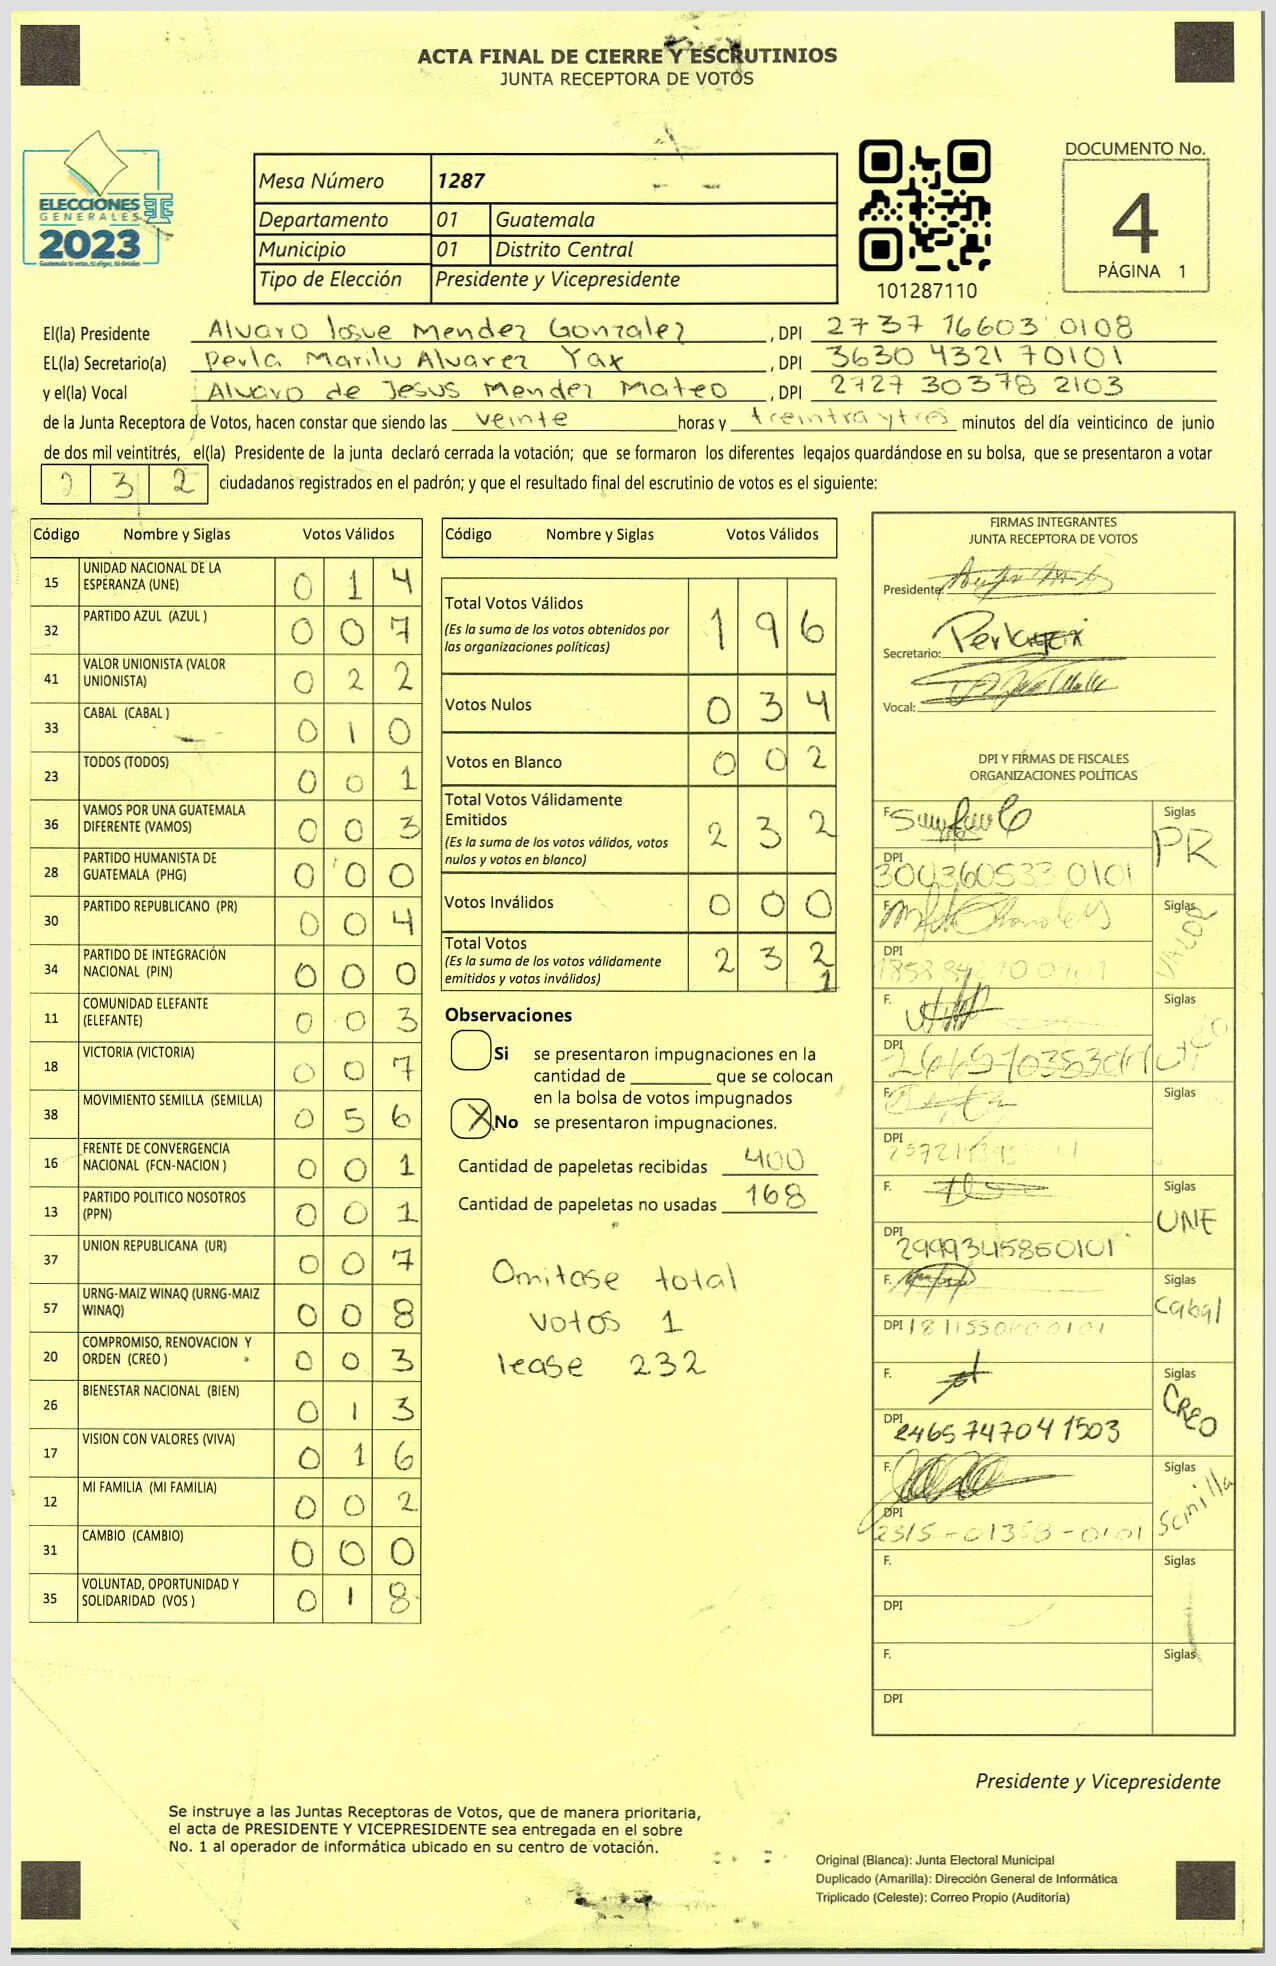 ACTA FINAL DE CIERRE Y ESCRUTINIOS
JUNTA RECEPTORA DE VOTOS
ELECCIONES
GENERALES
2023
Mesa Número 1287
Departamento 01 Guatemala
Municipio 01 Distrito Central
Tipo de Elección Presidente y Vicepresidente
101287110
DOCUMENTO No.
4
PÁGINA 1
El(la) Presidente Alvaro Iosue Mendez Gonzalez, DPI 2737 16603 0108
EL(la) Secretario(a) Perla Marilu Alvarez Yax, DPI 3630 4321 70101
y el(la) Vocal Alvaro de Jesus Mendez Mateo, DPI 2727 30378 2103
de la Junta Receptora de Votos, hacen constar que siendo las veinte horas y treintra y tres minutos del día veinticinco de junio
de dos mil veintitrés, el(la) Presidente de la junta declaró cerrada la votación; que se formaron los diferentes legajos guardándose en su bolsa, que se presentaron a votar
232 ciudadanos registrados en el padrón; y que el resultado final del escrutinio de votos es el siguiente:
Código Nombre y Siglas Votos Válidos
15 UNIDAD NACIONAL DE LA ESPERANZA (UNE) 014
32 PARTIDO AZUL (AZUL ) 007
41 VALOR UNIONISTA (VALOR UNIONISTA) 022
33 CABAL (CABAL ) 010
23 TODOS (TODOS) 001
36 VAMOS POR UNA GUATEMALA DIFERENTE (VAMOS) 003
28 PARTIDO HUMANISTA DE GUATEMALA (PHG) 000
30 PARTIDO REPUBLICANO (PR) 004
34 PARTIDO DE INTEGRACIÓN NACIONAL (PIN) 000
11 COMUNIDAD ELEFANTE (ELEFANTE) 003
18 VICTORIA (VICTORIA) 007
38 MOVIMIENTO SEMILLA (SEMILLA) 056
16 FRENTE DE CONVERGENCIA NACIONAL (FCN-NACION ) 001
13 PARTIDO POLITICO NOSOTROS (PPN) 001
37 UNION REPUBLICANA (UR) 007
57 URNG-MAIZ WINAQ (URNG-MAIZ WINAQ) 008
20 COMPROMISO, RENOVACION Y ORDEN (CREO ) 003
26 BIENESTAR NACIONAL (BIEN) 013
17 VISION CON VALORES (VIVA) 016
12 MI FAMILIA (MI FAMILIA) 002
31 CAMBIO (CAMBIO) 000
35 VOLUNTAD, OPORTUNIDAD Y SOLIDARIDAD (VOS ) 018
Código Nombre y Siglas Votos Válidos
Total Votos Válidos 196
(Es la suma de los votos obtenidos por
las organizaciones políticas)
Votos Nulos 034
Votos en Blanco 002
Total Votos Válidamente
Emitidos 232
(Es la suma de los votos válidos, votos
nulos y votos en blanco)
Votos Inválidos 000
Total Votos 232
(Es la suma de los votos válidamente
emitidos y votos inválidos) 1
Observaciones
Si se presentaron impugnaciones en la
cantidad de ________ que se colocan
en la bolsa de votos impugnados
X No se presentaron impugnaciones.
Cantidad de papeletas recibidas 400
Cantidad de papeletas no usadas 168
Omitase total
votos 1
lease 232
FIRMAS INTEGRANTES
JUNTA RECEPTORA DE VOTOS
Presidente:
Secretario: Perla
Vocal:
DPI Y FIRMAS DE FISCALES
ORGANIZACIONES POLÍTICAS
F. Siglas PR
DPI 300360533 0101
F. Siglas VALOR
DPI
F. Siglas
DPI
F. Siglas
DPI
F. Siglas UNE
DPI 2999345860101
F. Siglas Cabal
DPI
F. Siglas CREO
DPI 2465747041503
F. Siglas Semilla
DPI 2315-01358-0101
F. Siglas
DPI
F. Siglas
DPI
Presidente y Vicepresidente
Se instruye a las Juntas Receptoras de Votos, que de manera prioritaria,
el acta de PRESIDENTE Y VICEPRESIDENTE sea entregada en el sobre
No. 1 al operador de informática ubicado en su centro de votación.
Original (Blanca): Junta Electoral Municipal
Duplicado (Amarilla): Dirección General de Informática
Triplicado (Celeste): Correo Propio (Auditoría)